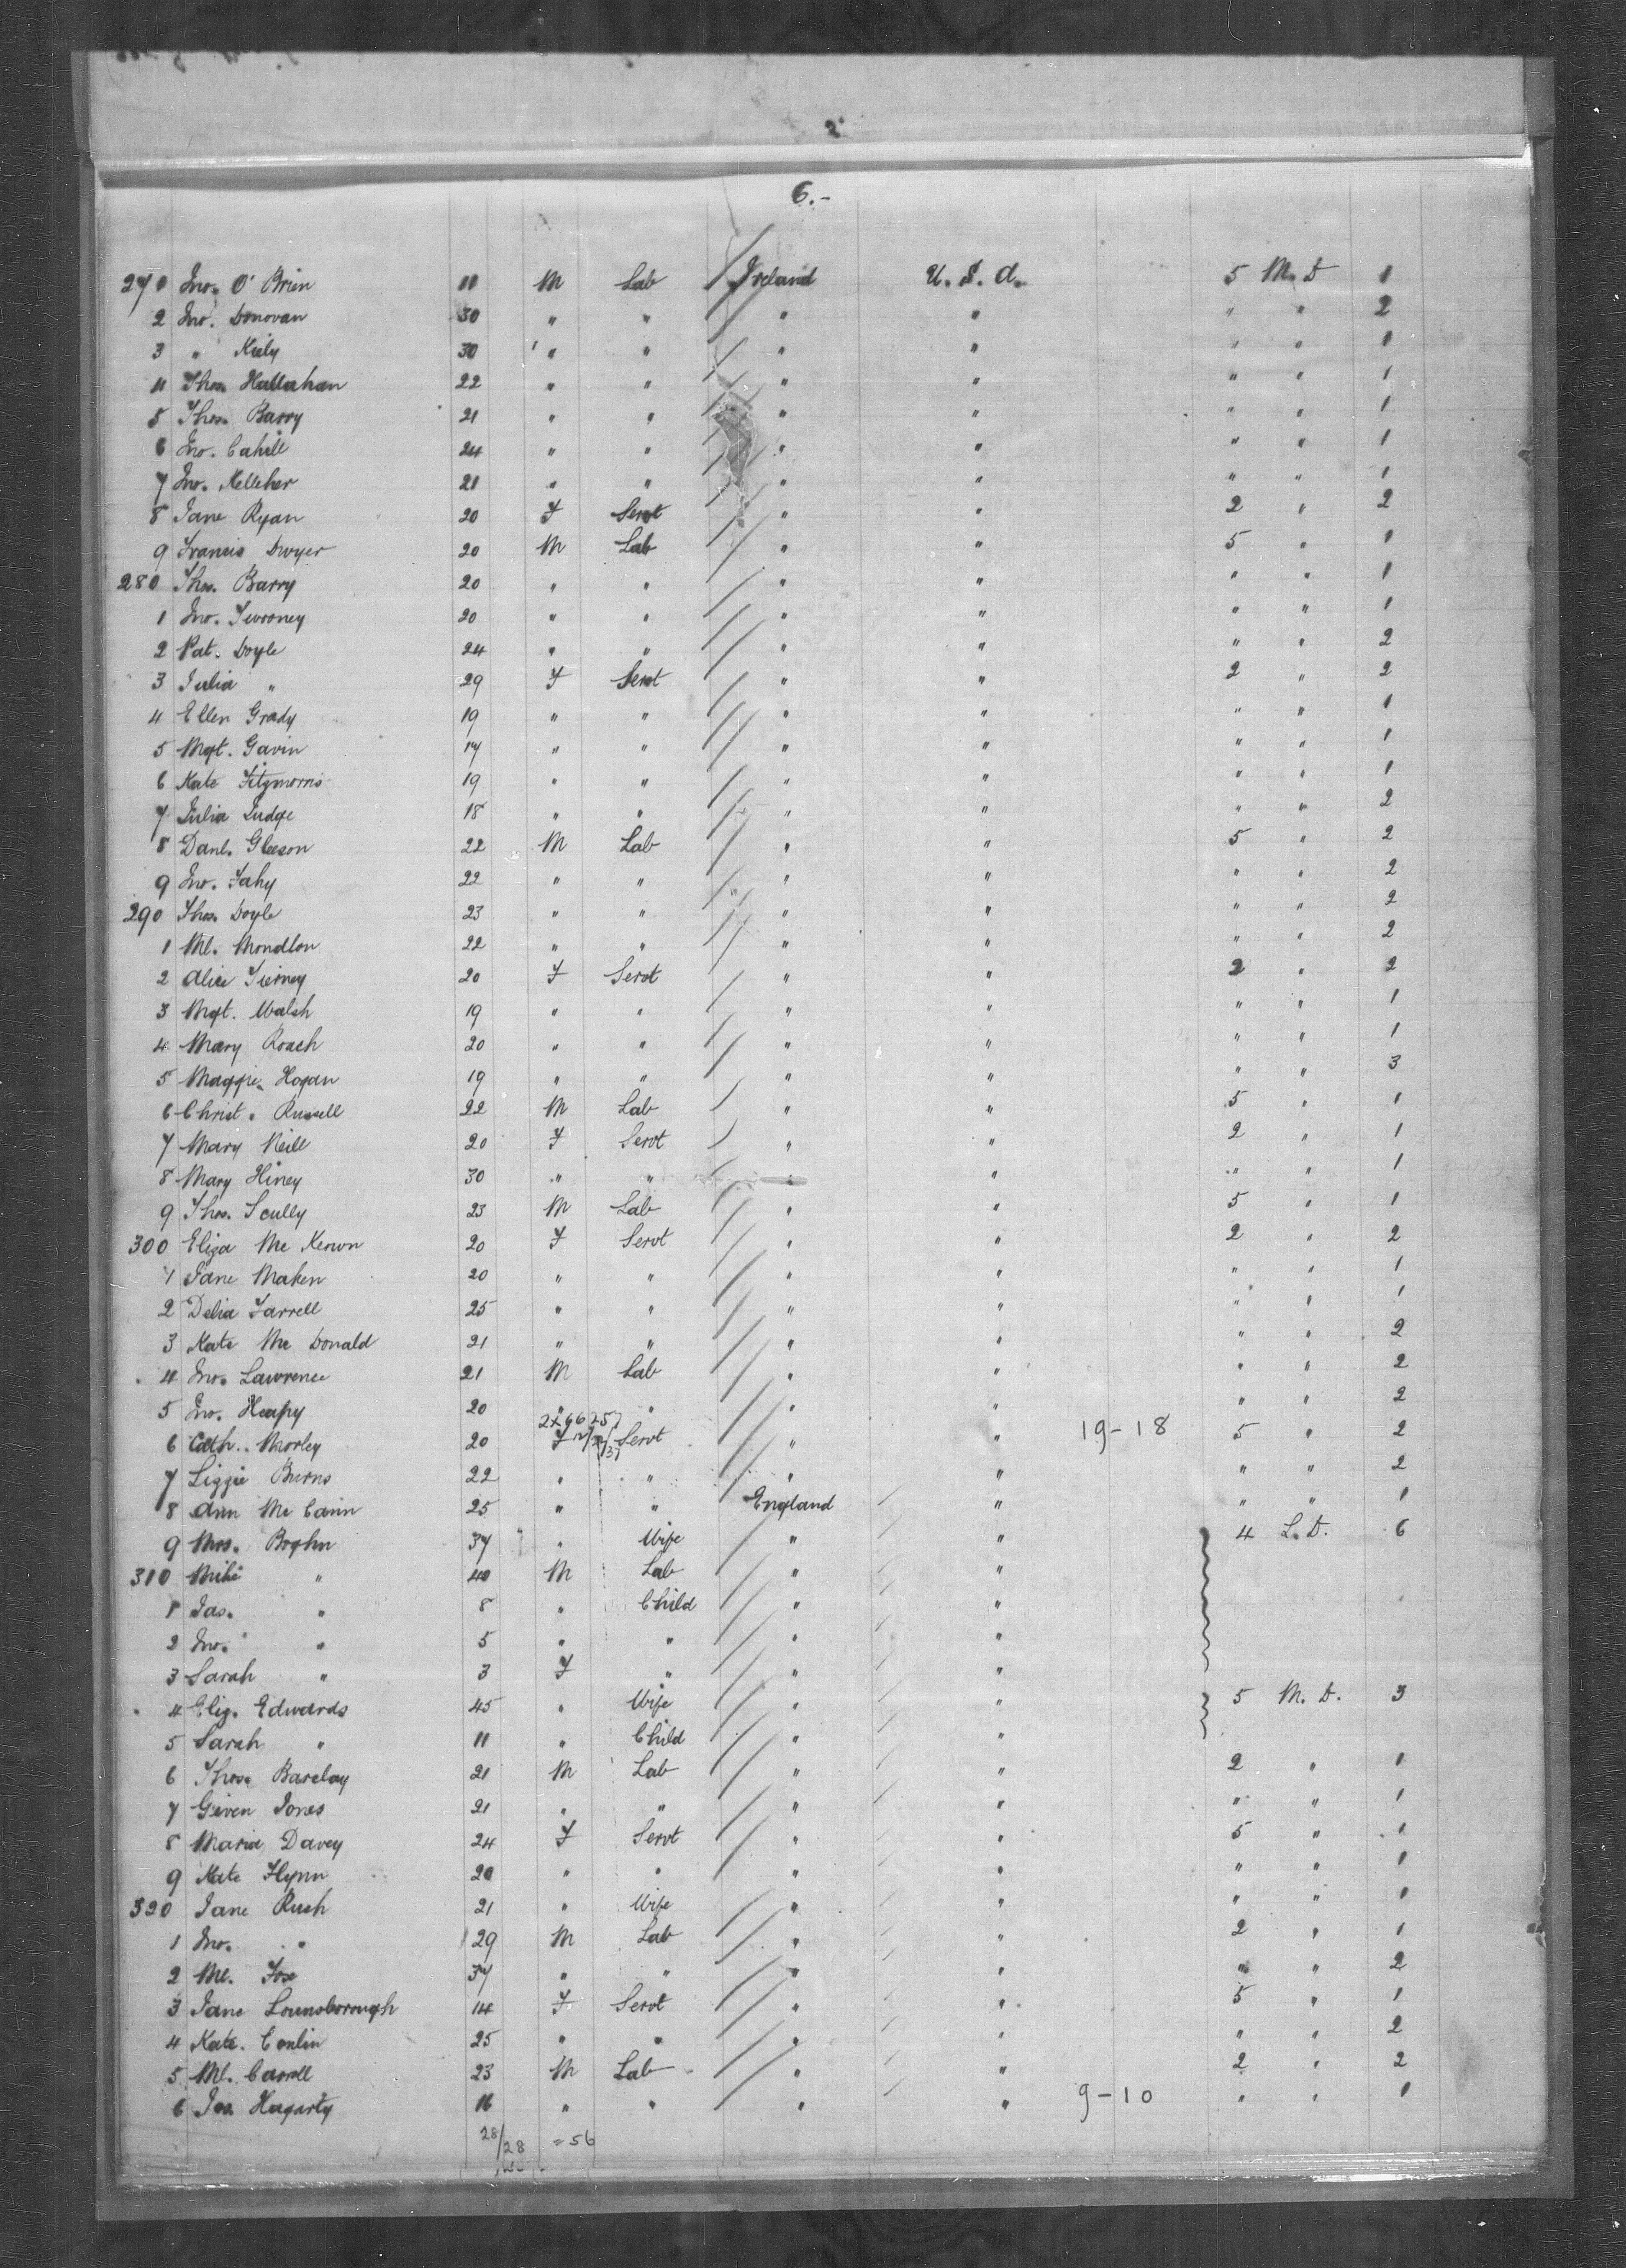 2
6.-
271 Jno. O'Brien 11 M Lab Ireland U.S.A. 5 M.D 1
2 Jno. Donovan 30 " " " " " " 2
3 " Kiely 30 " " " " " " 1
4 Thos. Hallahan 22 " " " " " " 1
5 Thos. Barry 21 " " " " " " 1
6 Jno. Cahill 24 " " " " " " 1
7 Jno. Kelleher 21 " " " " " " 1
8 Jane Ryan 20 F Servt " " 2 " 2
9 Francis Dwyer 20 M Lab " " 5 " 1
280 Thos. Barry 20 " " " " " " 1
1 Jno. 20 " " " " " " 1
2 Pat. Doyle 24 " " " " " " 2
3 Julia " 29 F Servt " " 2 " 2
4 Ellen Grady 19 " " " " " " 1
5 Mgt. Gavin 17 " " " " " " 1
6 Kate Fitzmorris 19 " " " " " " 1
7 Julia Judge 18 " " " " " " 2
8 Danl. Gleeson 22 M Lab " " 5 " 2
9 Jno. Fahy 22 " " " " " " 2
290 Thos. Doyle 23 " " " " " " 2
1 Ml. Mondlon 22 " " " " " " 2
2 Alice Tierney 20 F Servt " " 2 " 2
3 Mgt. Walsh 19 " " " " " " 1
4 Mary Roach 20 " " " " " " 1
5 Maggie Hogan 19 " " " " " " 3
6 Christ. Russell 22 M Lab " " 5 " 1
7 Mary Neill 20 F Servt " " 2 " 1
8 Mary Hiney 30 " " " " " " 1
9 Thos. Scully 23 M Lab " " 5 " 1
300 Eliza Mc Keown 20 F Servt " " 2 " 2
1 Jane Maken 20 " " " " " " 1
2 Delia Farrell 25 " " " " " " 1
3 Kate Mc Donald 21 " " " " " " 2
4 Jno. Lawrence 21 M Lab " " " " 2
5 Jno. Heapy 20 " " " " " " 2
6 Cath. Morley 20 F Servt " " 19-18 5 " 2
7 Lizzie Burns 22 " " " " " " 2
8 Ann Mc Cann 25 " " England " " " 1
9 Mrs. Boghn 37 " Wife " " 4 L.D. 6
310 Mike " 40 M Lab " "
1 Jas. " 8 " Child " "
2 Jno. " 5 " " " "
3 Sarah " 3 F " " "
4 Eliz. Edwards 45 " Wife " " 5 M.D. 3
5 Sarah " 11 " Child " "
6 Thos. Barclay 21 M Lab " " 2 " 1
7 Given Jones 21 " " " " " " 1
8 Maria Davey 24 F Servt " " 5 " 1
9 Kate Flynn 20 " " " " " " 1
320 Jane Rush 21 " Wife " " " " 1
1 Jno. " 29 M Lab " " 2 " 1
2 Ml. Fox 37 " " " " " " 2
3 Jane Lounsborough 14 F Servt " " 5 " 1
4 Kate. Conlin 25 " " " " " " 2
5 Ml. Carroll 23 M Lab " " 2 " 2
6 Jas. Hagarty 16 " " " " 9-10 " " 1
28/28 =56